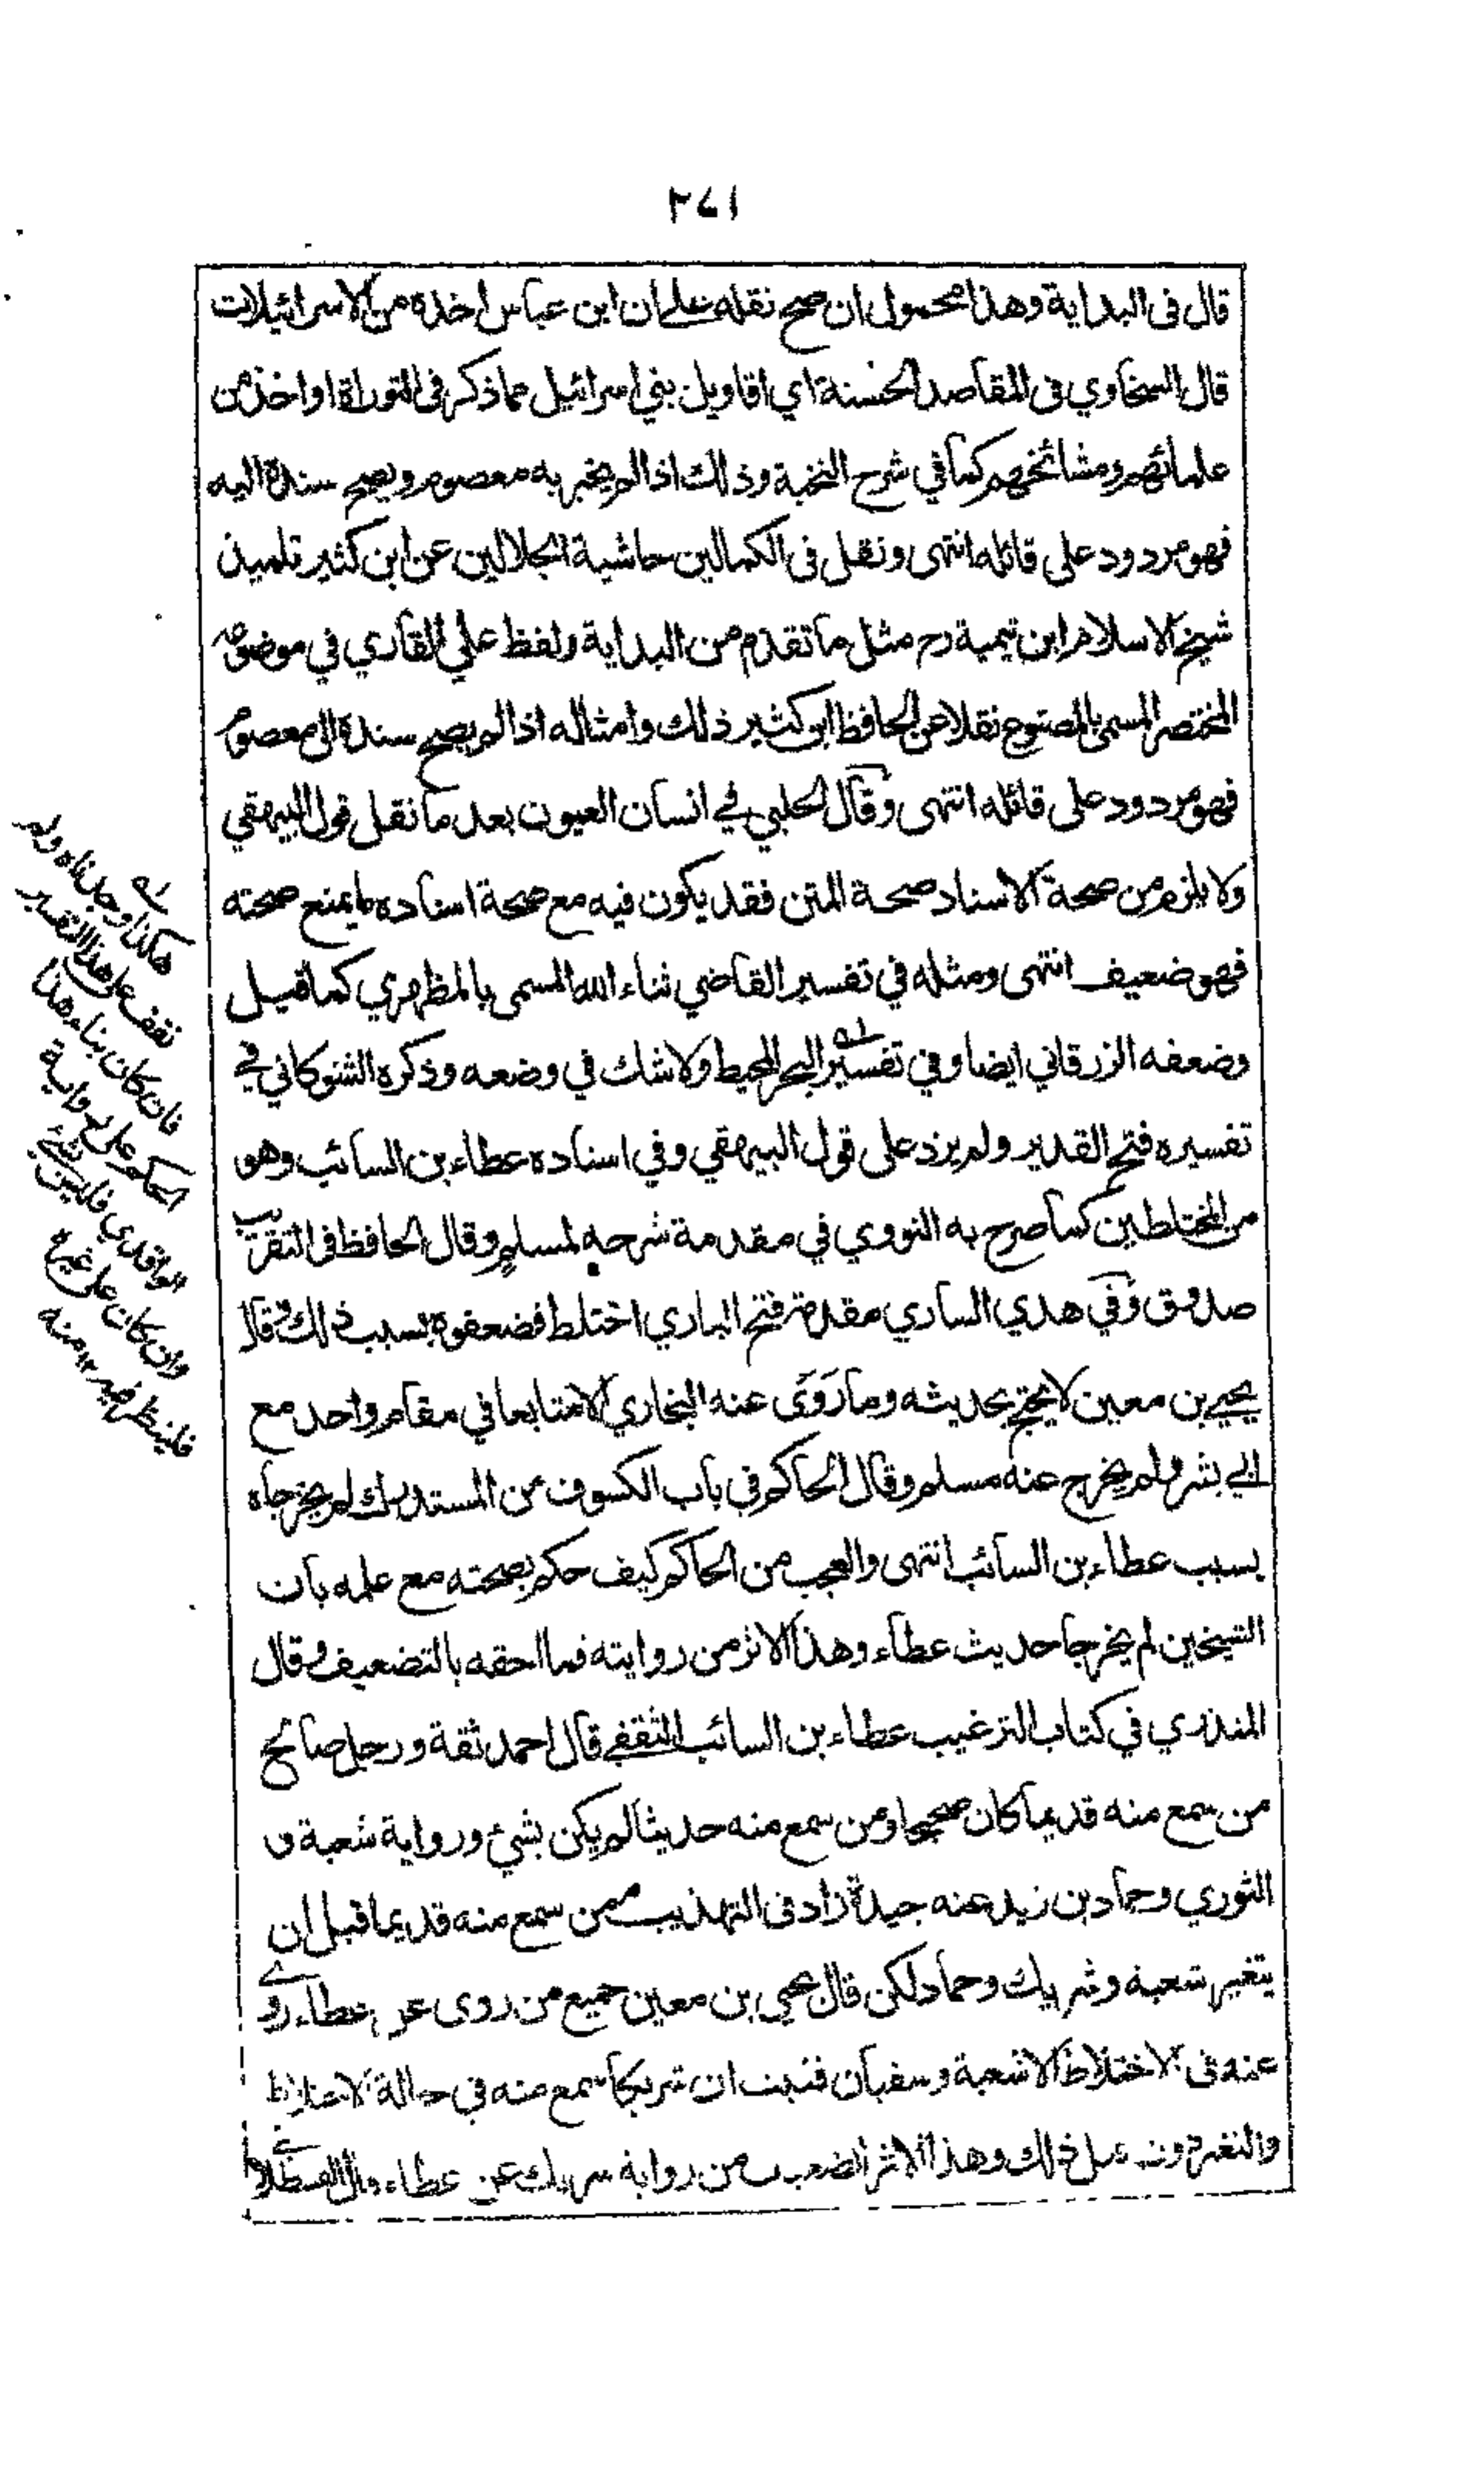 ٢٧١
قال فى البداية وهذا محمول ان صح نقله على ان ابن عباس اخذه من الاسرائيلات
قال السخاوي فى المقاصد الحسنة اي اقاويل بني اسرائيل مما ذكر فى التوراة او اخذ من
علمائهم ومشائخهم كما في شرح النخبة وذلك اذا لم يخبر به معصوم ويصح سنده اليه
فهو مردود على قائله انتهى ونقل فى الكمالين حاشية الجلالين عن ابن كثير تلميذ
شيخ الاسلام ابن تيمية رح مثل ما تقدم من البداية ولفظ علي القاري في موضوعه
المختصر المسمى بالمصنوع نقلا عن الحافظ ابن كثير ذلك وامثاله اذا لم يصح سنده الى معصوم
فهو مردود على قائله انتهى وقال الحلبي في انسان العيون بعد ما نقل قول البيهقي
ولا يلزم من صحة الاسناد صحة المتن فقد يكون فيه مع صحة اسناده ما يمنع صحته
فهو ضعيف انتهى ومثله في تفسير القاضي ثناء الله المسمى بالمظهري كما قيل
وضعفه الزرقاني ايضا وفي تفسير البحر المحيط ولا شك في وضعه وذكره الشوكاني في
تفسيره فتح القدير ولم يزد على قول البيهقي وفي اسناده عطاء بن السائب وهو
من المختلطين كما صرح به النووي في مقدمة شرحه لمسلم وقال الحافظ فى التقريب
صدوق وفي هدي الساري مقدمة فتح الباري اختلط فضعفوه بسبب ذلك وقال
يحيى بن معين لا يحتج بحديثه وما روى عنه البخاري الا متابعا في مقام واحد مع
ابي بشر ولم يخرج عنه مسلم وقال الحاكم في باب الكسوف من المستدرك لم يخرجاه
بسبب عطاء بن السائب انتهى والعجب من الحاكم كيف حكم بصحته مع علمه بان
الشيخين لم يخرجا حديث عطاء وهذا الاثر من روايته فما الحقه بالتضعيف وقال
المنذري في كتاب الترغيب عطاء بن السائب الثقفي قال احمد ثقة ورجل صالح
من سمع منه قديما كان صحيحا ومن سمع منه حديثا لم يكن بشيء ورواية شعبة و
الثوري وحماد بن زيد عنه جيدة زاد فى التهذيب ممن سمع منه قديما قبل ان
يتغير شعبة وشريك وحماد لكن قال يحيى بن معين جميع من روى عن عطاء روى
عنه فى الاختلاط الا شعبة وسفيان فثبت ان شريكا سمع منه في حالة الاختلاط
والتغير دون قبل ذلك وهذا الاثر الضعيف من رواية شريك عن عطاء قال القسطلاني
له هكذا وجدناه ولم
نقف على هذا التفسير
فان كان بناء هذا
الحكم على رواية
الواقدي فليس بشيء
وان كان على غيره
فلينظر فيه ١٢ منه